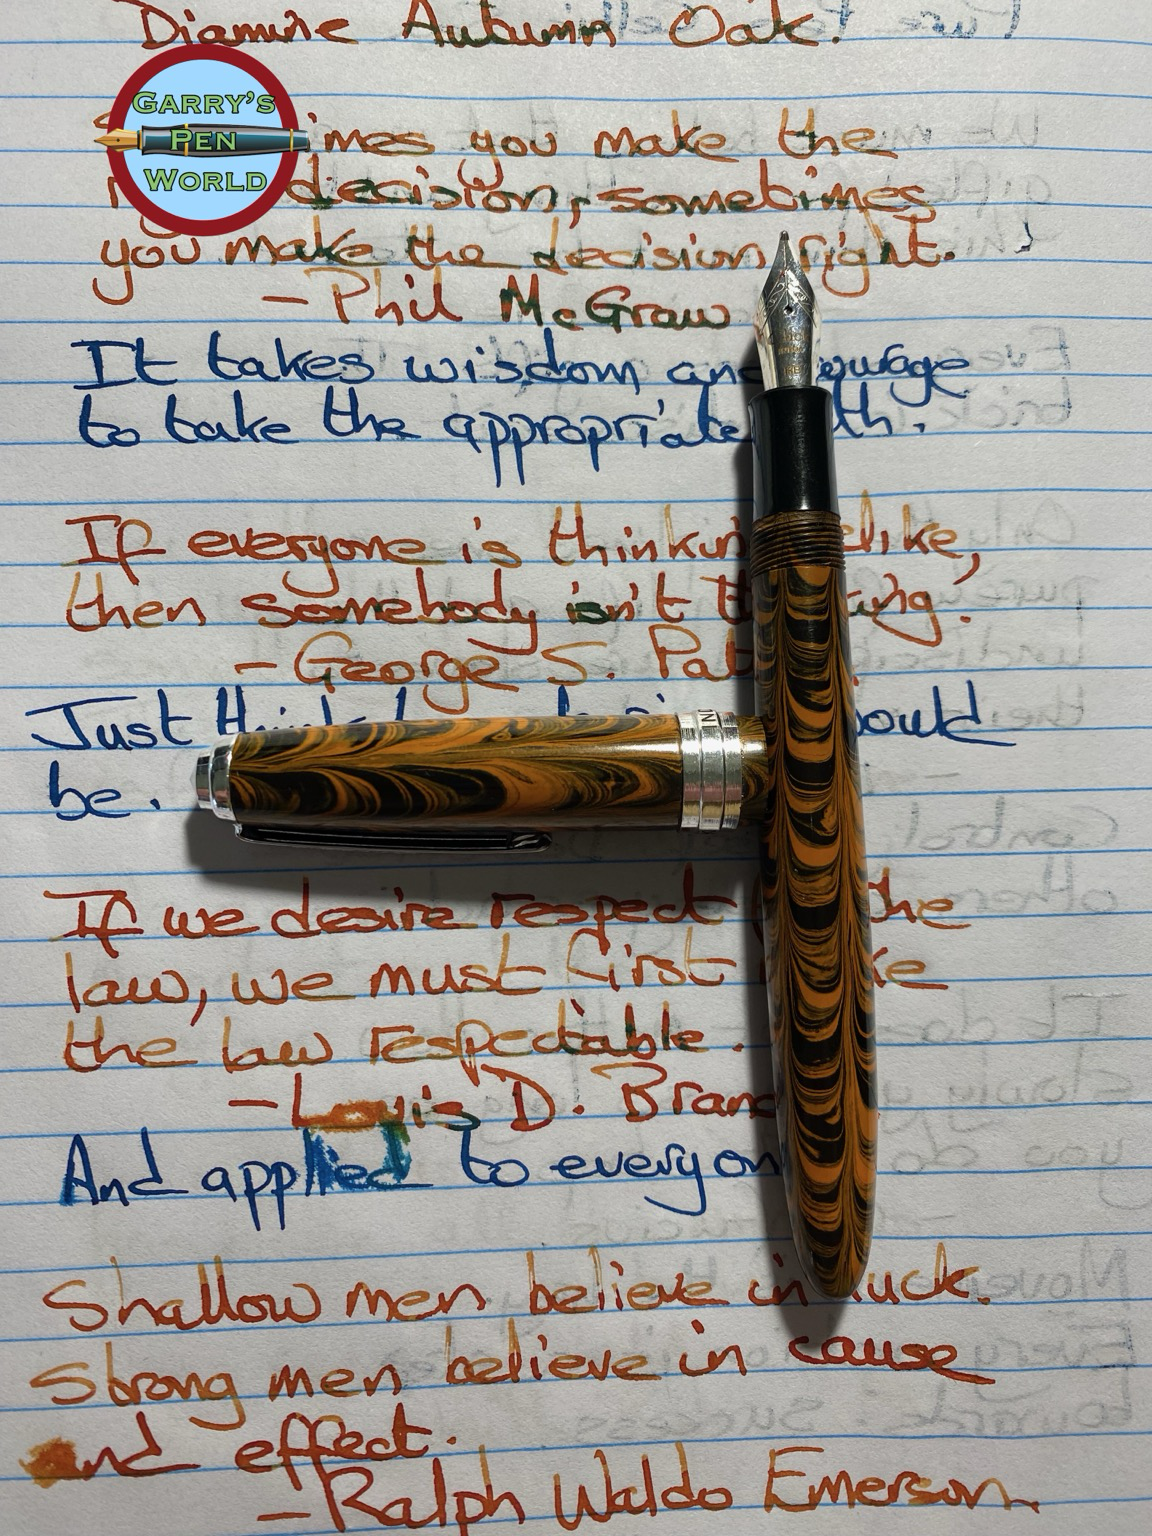 Diamine Autumn Oak.
GARRY'S
PEN
WORLD
imes you make the
decision, sometimes
you make the decision right.
- Phil McGraw
It takes wisdom and
to take the appropriate
If everyone is thinking alike,
then somebody isn't
- George S. Pat
Just think
would
be.
If we desire respect the
law, we must first
the law respectable.
- Louis D. Brand
And applied to everyon
Shallow men believe in luck.
Strong men believe in cause
and effect.
- Ralph Waldo Emerson.